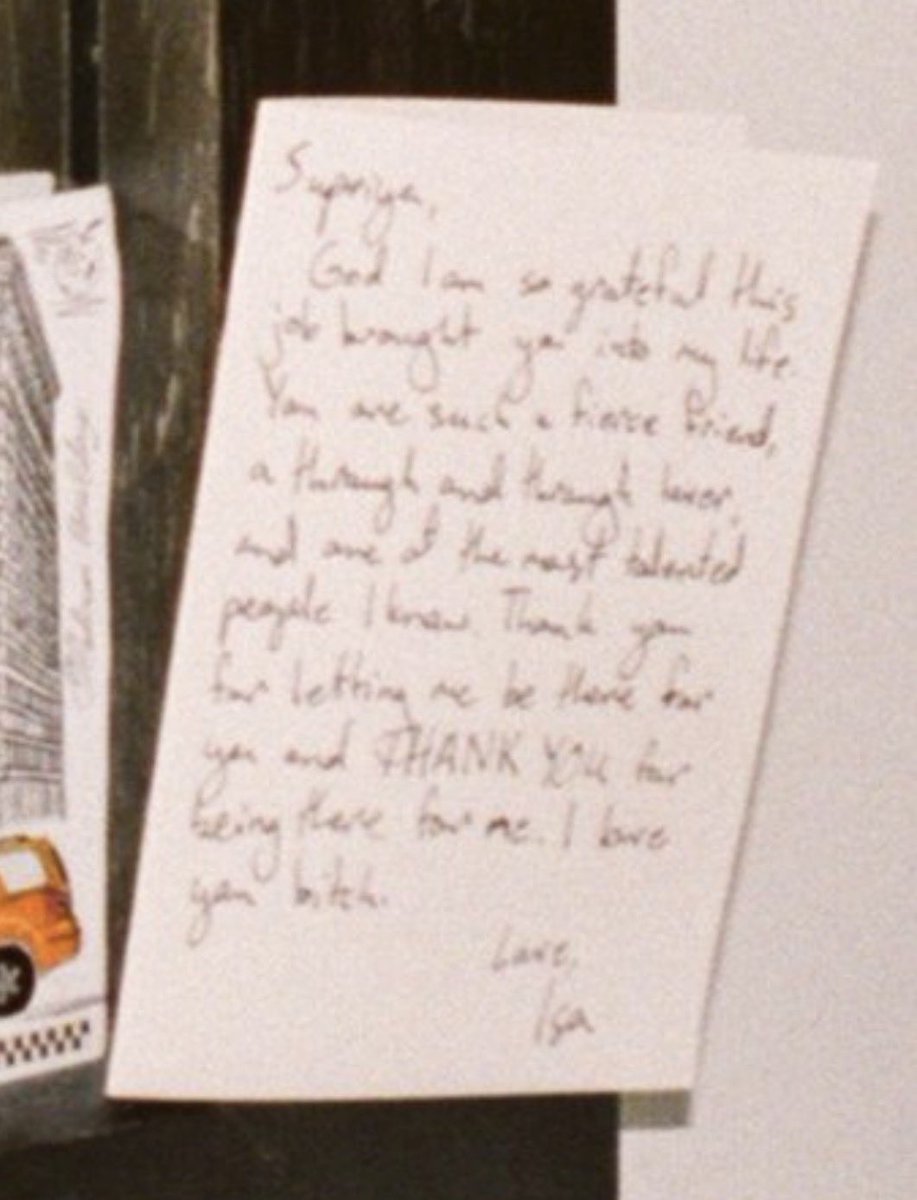 Supriya,
God I am so grateful this
job brought you into my life.
You are such a fierce friend,
a through and through lover,
and one of the most talented
people I know. Thank you
for letting me be there for
you and THANK YOU for
being there for me. I love
you bitch.
Love,
Isa